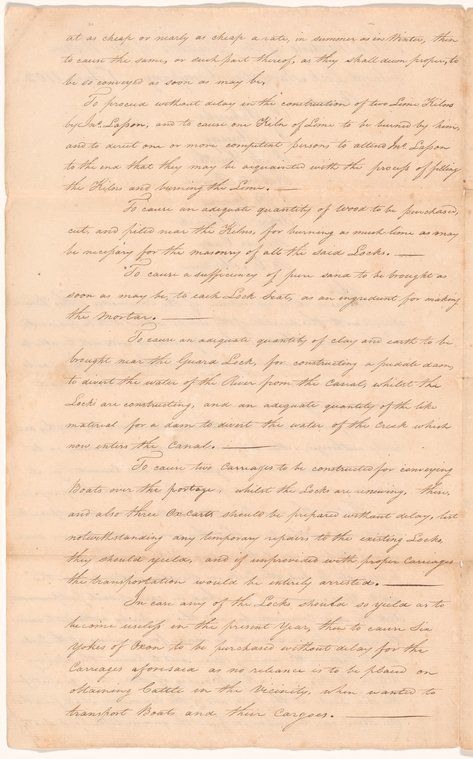 at as cheap or nearly as cheap a rate, in summer as in Winter, then
to cause the same, or such part thereof, as they shall deem proper, to
be so conveyed as soon as may be.
To proceed without delay in the construction of two Lime Kilns
by Jno. Lapson, and to cause one Kiln of Lime to be burned by him,
and to direct one or more competent persons to attend Jno. Lapson
to the end that they may be acquainted with the process of filling
the Kilns and burning the Lime. —
To cause an adequate quantity of wood to be purchased,
cut, and piled near the Kilns, for burning as much lime as may
be necessary for the masonry of all the said Locks. —
To cause a sufficiency of pure sand to be brought as
soon as may be, to each Lock Seat, as an ingredient for making
the mortar. —
To cause an adequate quantity of clay and earth to be
brought near the Guard Lock, for constructing a puddle dam,
to divert the water of the River from the Canal, whilst the
Locks are constructing, and an adequate quantity of the like
material for a dam to divert the water of the Creek which
now enters the Canal. —
To cause two Carriages to be constructed for conveying
Boats over the portage, whilst the Locks are there,
and also three Ox Carts should be prepared without delay, lest
notwithstanding any temporary repairs to the existing Locks
they should yield, and if unprovided with proper Carriages
the transportation would be entirely arrested. —
In case any of the Locks should so yield as to
become useless in the present Year, then to cause Six
Yokes of Oxen to be purchased without delay for the
Carriages aforesaid as no reliance is to be placed on
obtaining Cattle in the Vicinity, when wanted to
transport Boats and their Cargoes. —